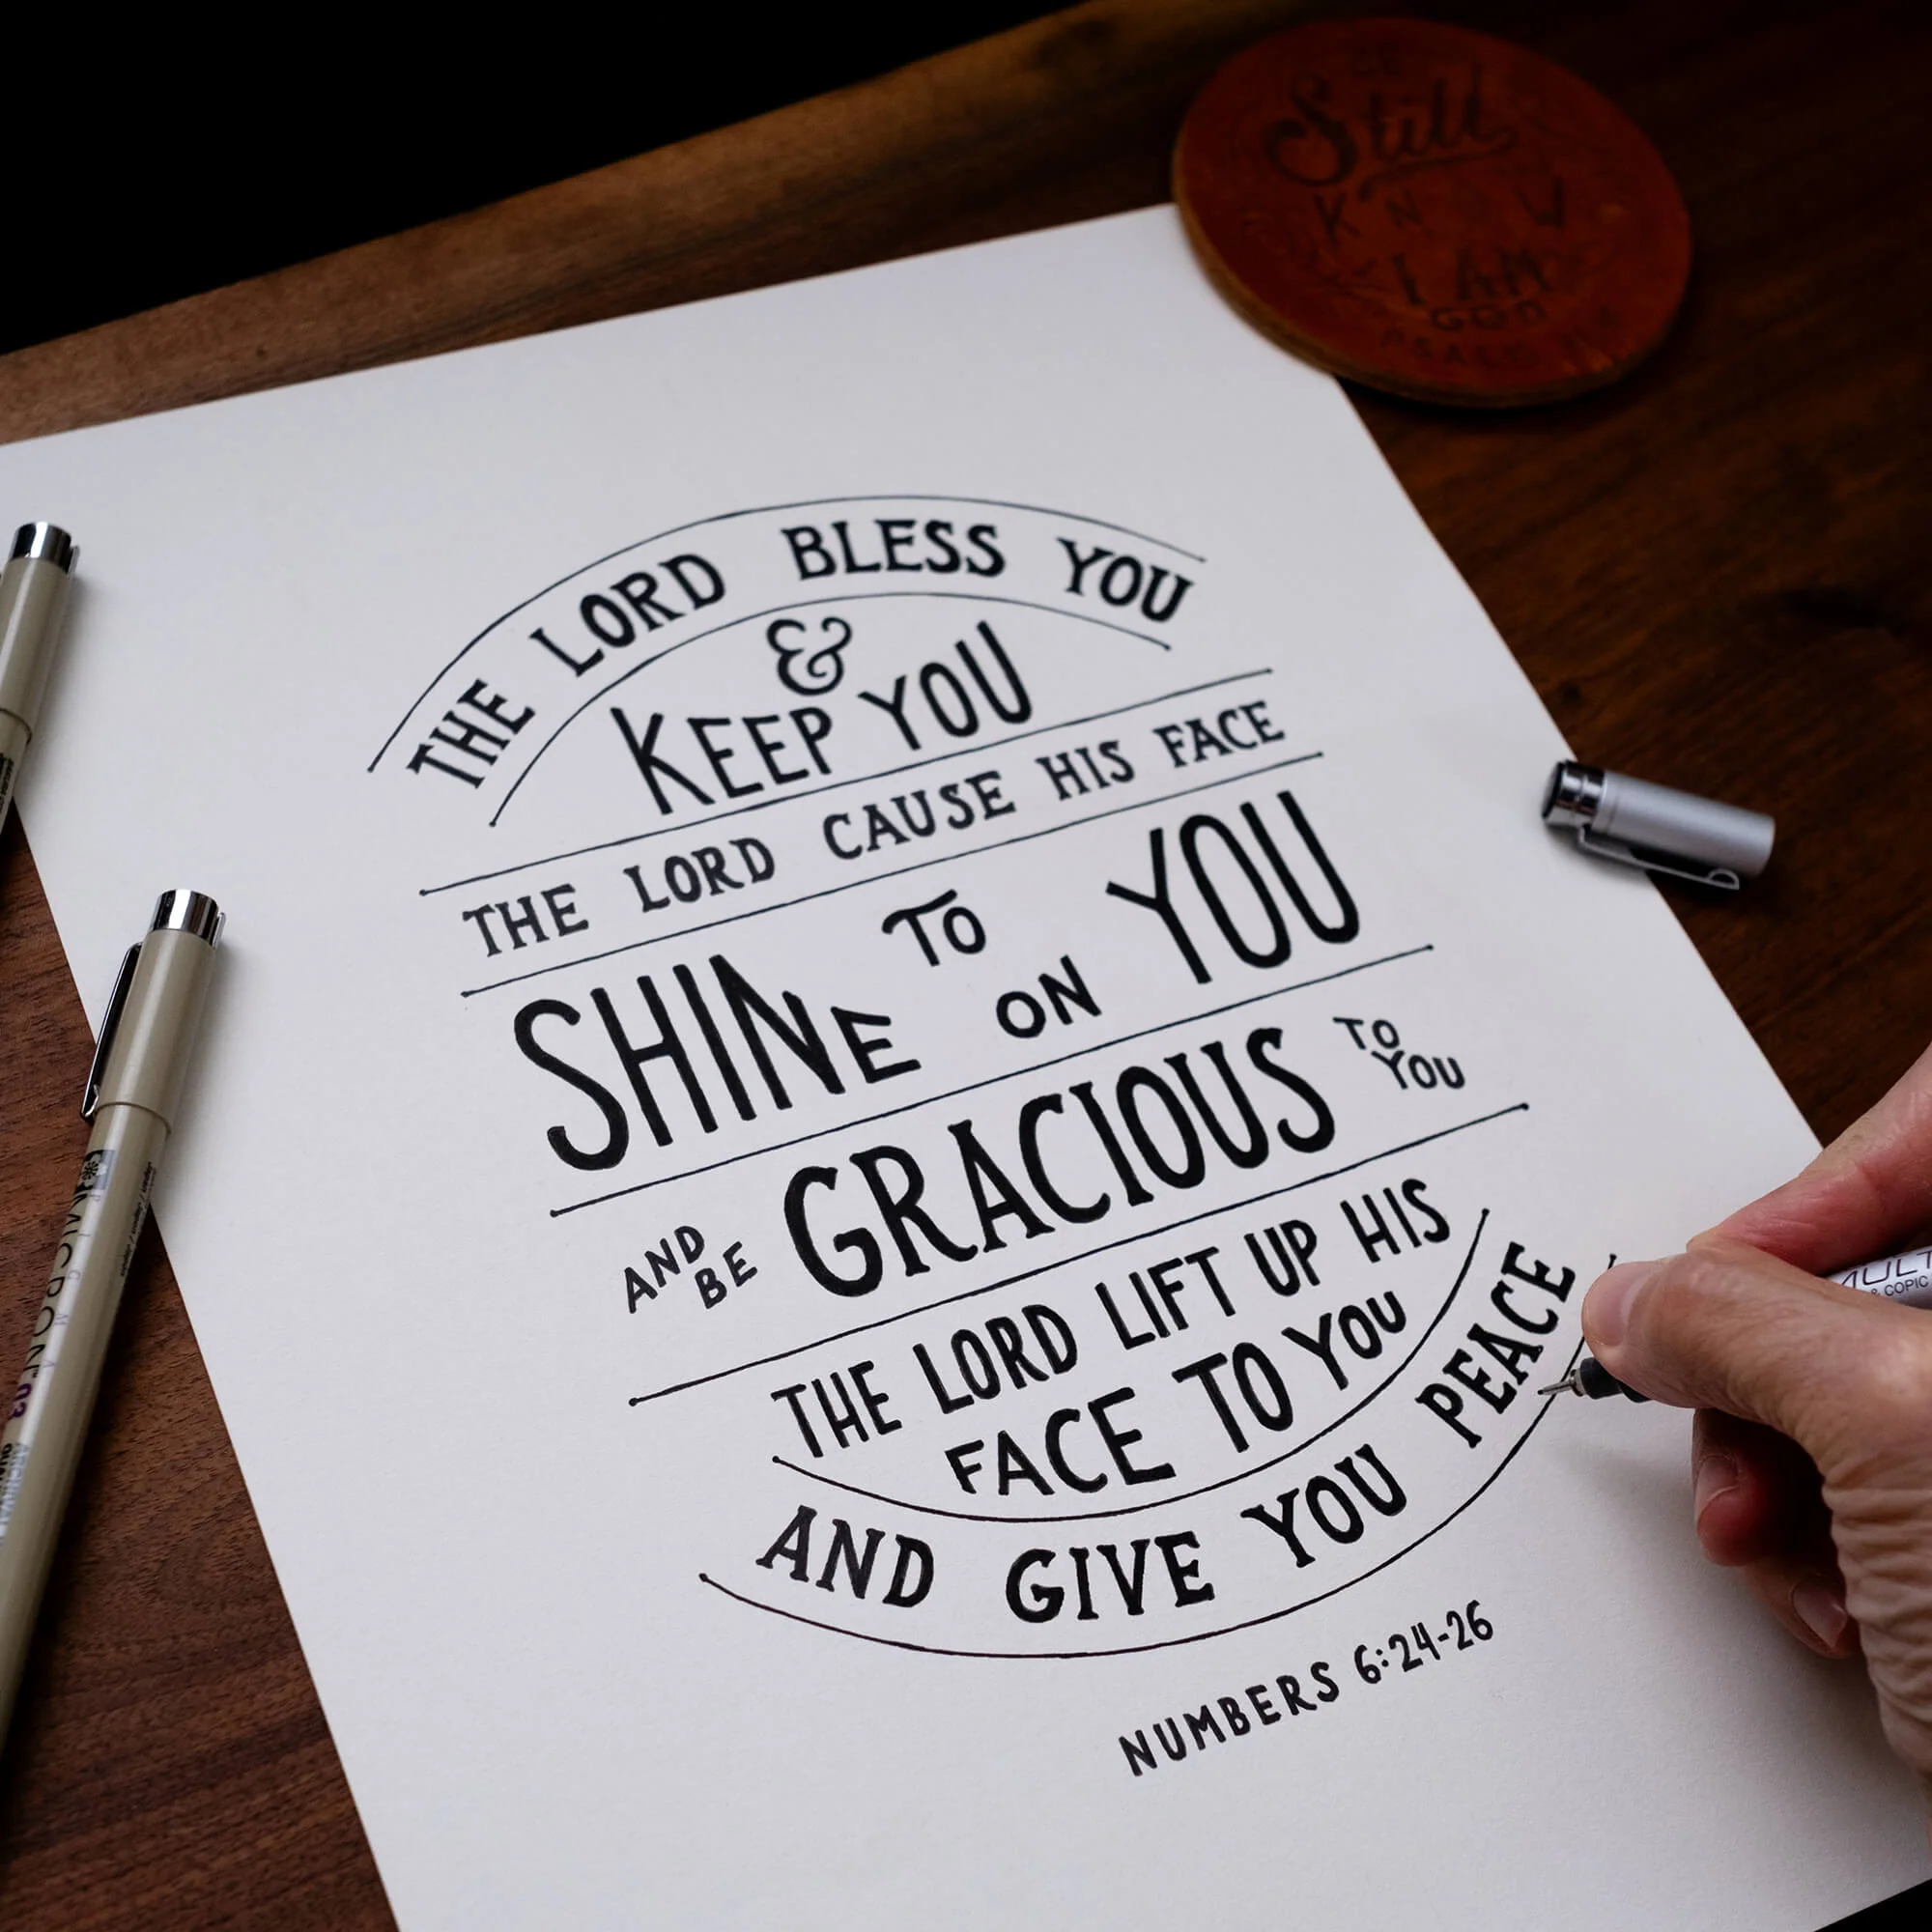 BE
Still
KNOW
I AM
GOD
PSALM
THE LORD BLESS YOU
&
KEEP YOU
THE LORD CAUSE HIS FACE
TO
SHINE ON YOU
AND BE GRACIOUS TO YOU
THE LORD LIFT UP HIS
FACE TO YOU
AND GIVE YOU PEACE
NUMBERS 6:24-26
PIGMA
MICRON 03
MULT
& COPIC